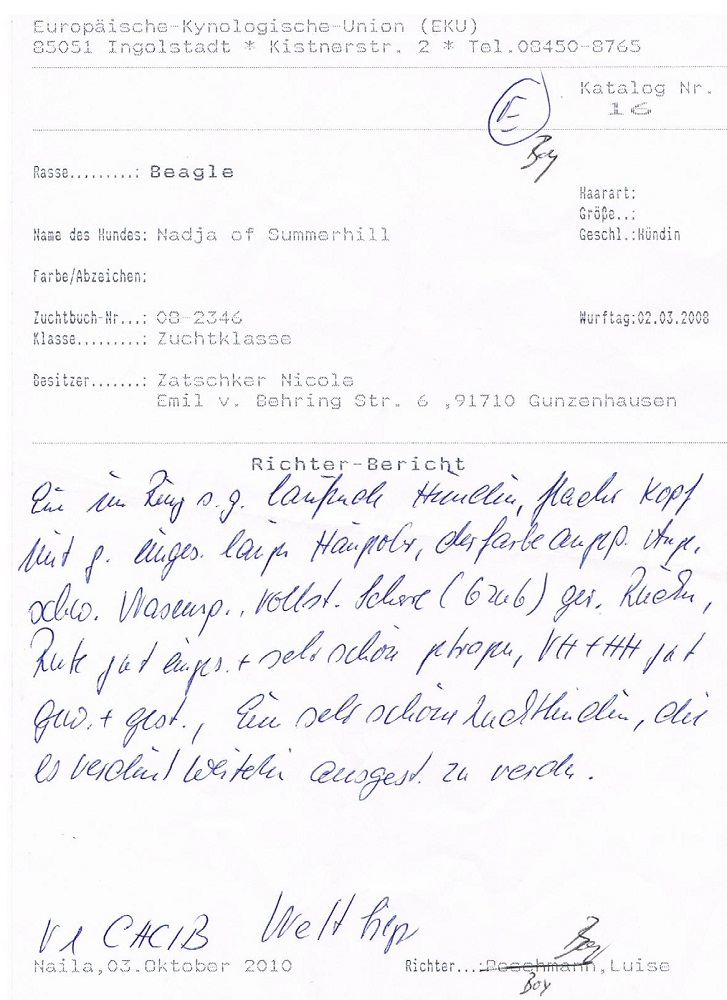 Europäische-Kynologische-Union (EKU)
85051 Ingolstadt * Kistnerstr. 2 * Tel.08450-8765
Katalog Nr.
16
E
Boy
Rasse.........: Beagle
Haarart:
Größe..:
Name des Hundes: Nadja of Summerhill
Geschl.:Hündin
Farbe/Abzeichen:
Zuchtbuch-Nr...: 08-2346
Wurftag:02.03.2008
Klasse.........: Zuchtklasse
Besitzer.......: Zatschker Nicole
Emil v. Behring Str. 6 ,91710 Gunzenhausen
Richter-Bericht
Ein im Ring s.g. laufende Hündin, flacher Kopf
mit g. einges. langen Hängeohr, der farbe angep. Auge,
schw. Nasensp., vollst. Schere (6zu6) ger. Rücken,
Rute gut einges. + sehr schön getragen, VH + HH gut
gew. + gest., Ein sehr schöne Zuchthündin, die
es verdient weiterhin ausgest. zu werden.
V1 CACIB Welt
Naila,03.Oktober 2010
Richter....Poschmann,Luise
Boy
Boy